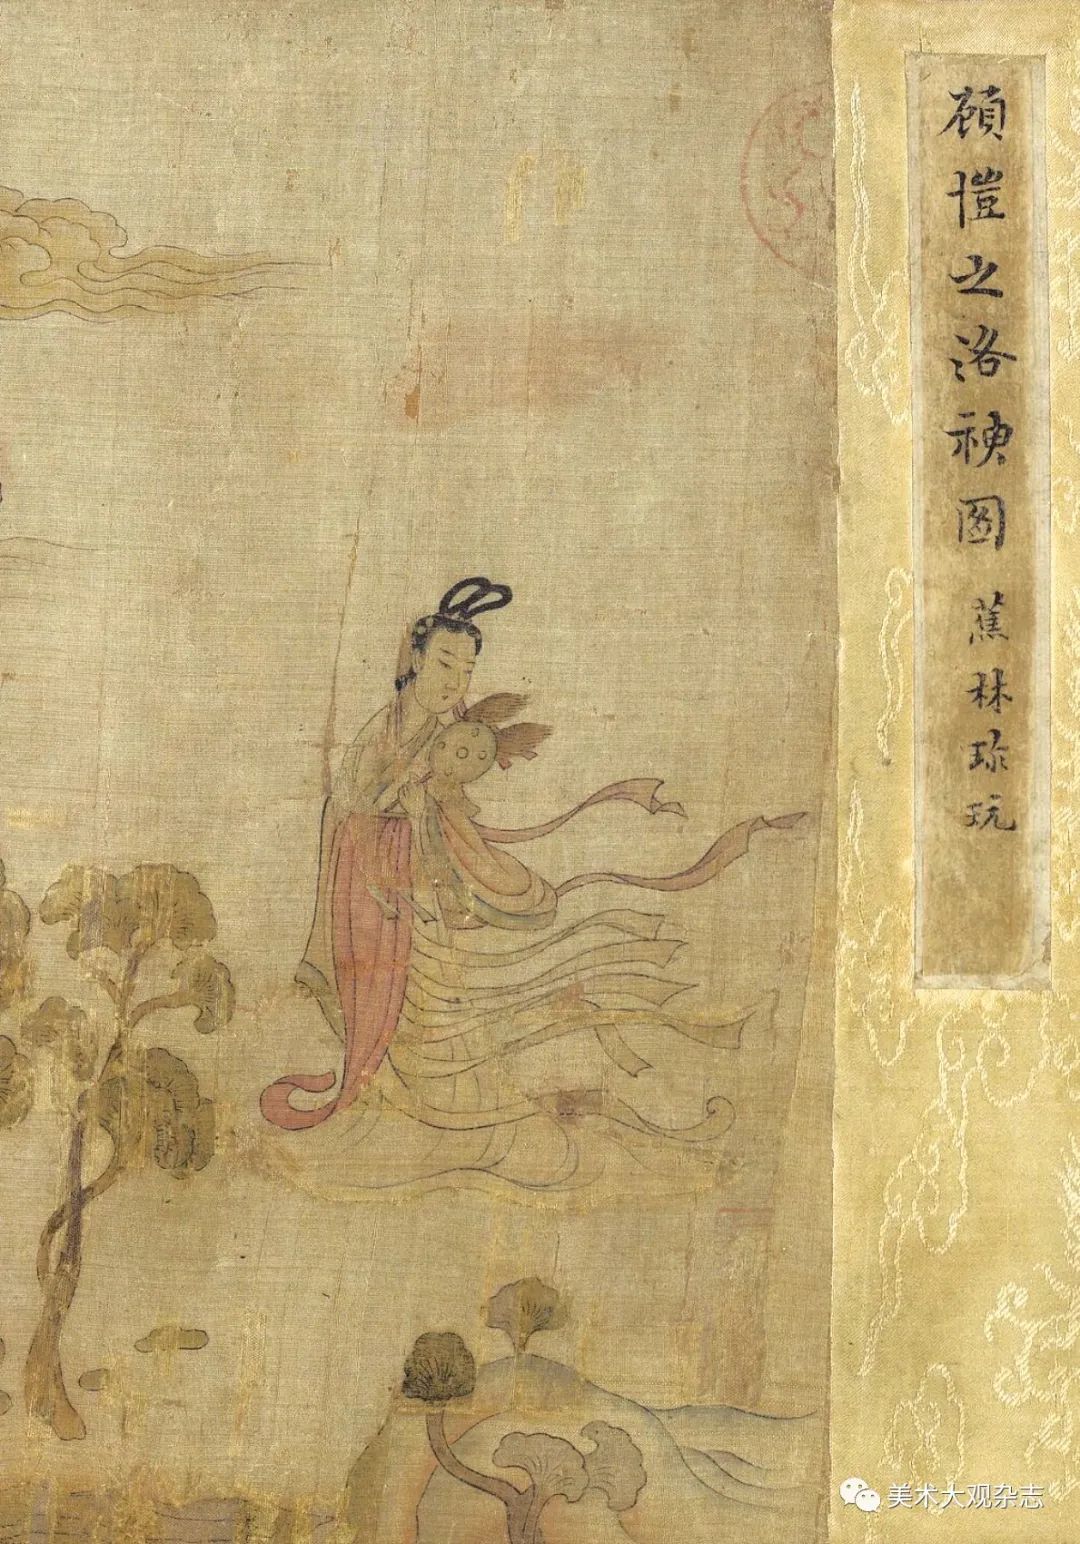 顾恺之洛神图
蕉林珍玩
美术大观杂志